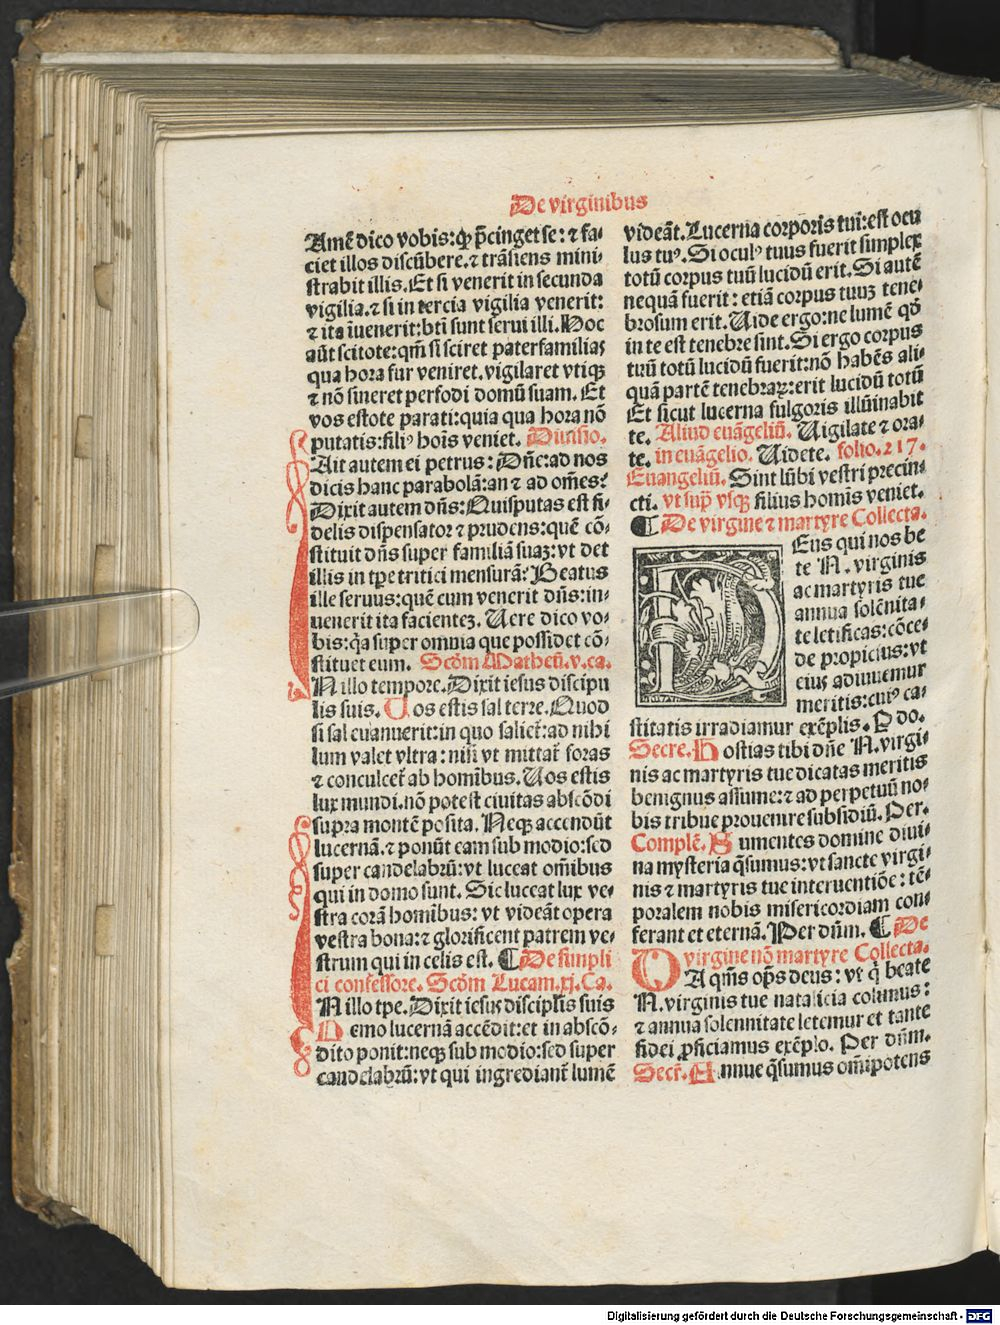 De virginibus
Amē dico vobis: ꝙ p̄cinget se: ⁊ fa⸗
ciet illos discūbere. ⁊ trāsiens mini⸗
strabit illis. Et si venerit in secunda
vigilia. ⁊ si in tercia vigilia venerit:
⁊ ita īuenerit: bt̄i sunt serui illi. Hoc
aūt scitote: qm̄ si sciret paterfamilias
qua hora fur veniret. vigilaret vtiqꝫ
⁊ nō sineret perfodi domū suam. Et
vos estote parati: quia qua hora nō
putatis: filiꝰ hoīs veniet. Diuisio.
Ait autem ei petrus: Dn̄e: ad nos
dicis hanc parabolā: an ⁊ ad om̄es?
Dixit autem dn̄s: Quis putas est fi⸗
delis dispensator ⁊ prudens: quē cō⸗
stituit dn̄s super familiā suaꝫ: vt det
illis in tꝑe tritici mensurā? Beatus
ille seruus: quē cum venerit dn̄s: in⸗
uenerit ita facienteꝫ. Uere dico vo⸗
bis: qꝛ super omnia que possidet cō⸗
stituet eum. Scd̄m Matheū. v. ca.
IN illo tempore. Dixit iesus discipu
lis suis. Uos estis sal terre. Quod
si sal euanuerit: in quo saliet᷑: ad nihi
lum valet vltra: nisi vt mittat᷑ foras
⁊ conculcet᷑ ab homībus. Uos estis
lux mundi. nō potest ciuitas abscōdi
supra montē posita. Neqꝫ accendūt
lucernā. ⁊ ponūt eam sub modio: sed
super candelabrū: vt luceat om̄ibus
qui in domo sunt. Sic luceat lux ve⸗
stra corā homībus: vt videāt opera
vestra bona: ⁊ glorificent patrem ve⸗
strum qui in celis est. ¶ De simpli
ci confessore. Scd̄m Lucam. xj. Ca.
IN illo tꝑe. Dixit iesus discip̄lis suis
Nemo lucernā accēdit: et in abscō⸗
dito ponit: neqꝫ sub modio: sed super
candelabrū: vt qui ingrediant᷑ lumē
videāt. Lucerna corporis tui: est ocu
lus tuꝰ. Si oculꝰ tuus fuerit simplex
totū corpus tuū lucidū erit. Si autē
nequā fuerit: etiā corpus tuuꝫ tene⸗
brosum erit. Uide ergo: ne lumē qd̄
in te est tenebre sint. Si ergo corpus
tuū totū lucidū fuerit: nō habēs ali⸗
quā partē tenebraꝝ: erit lucidū totū
Et sicut lucerna fulgoris illūinabit
te. Aliud euāgeliū. Uigilate ⁊ ora⸗
te. in euāgelio. Uidete. folio. 217.
Euangeliū. Sint lūbi vestri precin⸗
cti. vt sup̄ vsqꝫ filius homīs veniet.
¶ De virgine ⁊ martyre Collecta.
DEus qui nos be
te N. virginis
ac martyris tue
annua solēnita⸗
te letificas: cōce⸗
de propicius: vt
eius adiuuemur
meritis: cuiꝰ ca⸗
stitatis irradiamur exēplis. P do.
Secre. Hostias tibi dn̄e N. virgi⸗
nis ac martyris tue dicatas meritis
benignus assume: ⁊ ad perpetuū no⸗
bis tribue prouenire subsidiū. Per.
Complē. Sumentes domine diui⸗
na mysteria q̄sumus: vt sancte virgi⸗
nis ⁊ martyris tue interuentiōe: tē⸗
poralem nobis misericordiam con⸗
ferant et eternā. Per dn̄m. ¶ De
virgine nō martyre Collecta.
DA qm̄s op̄s deus: vt q̄ beate
N. virginis tue natalicia colimus:
⁊ annua solennitate letemur et tante
fidei ꝓficiamus exēplo. Per dn̄m.
Secr̄. Annue q̄sumus om̄ipotens
Digitalisierung gefördert durch die Deutsche Forschungsgemeinschaft - DFG